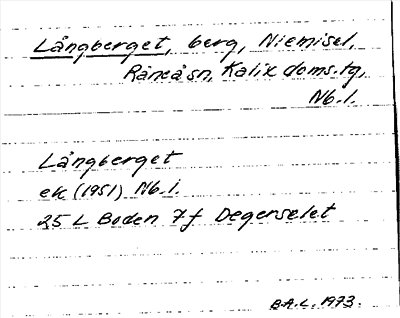 Långberget, berg, Niemisel,
Råneå sn, Kalix doms.tg,
Nb.l.
Långberget
ek (1951) Nb.l.
25 L Boden 7f Degerselet
B.A.L. 1973.